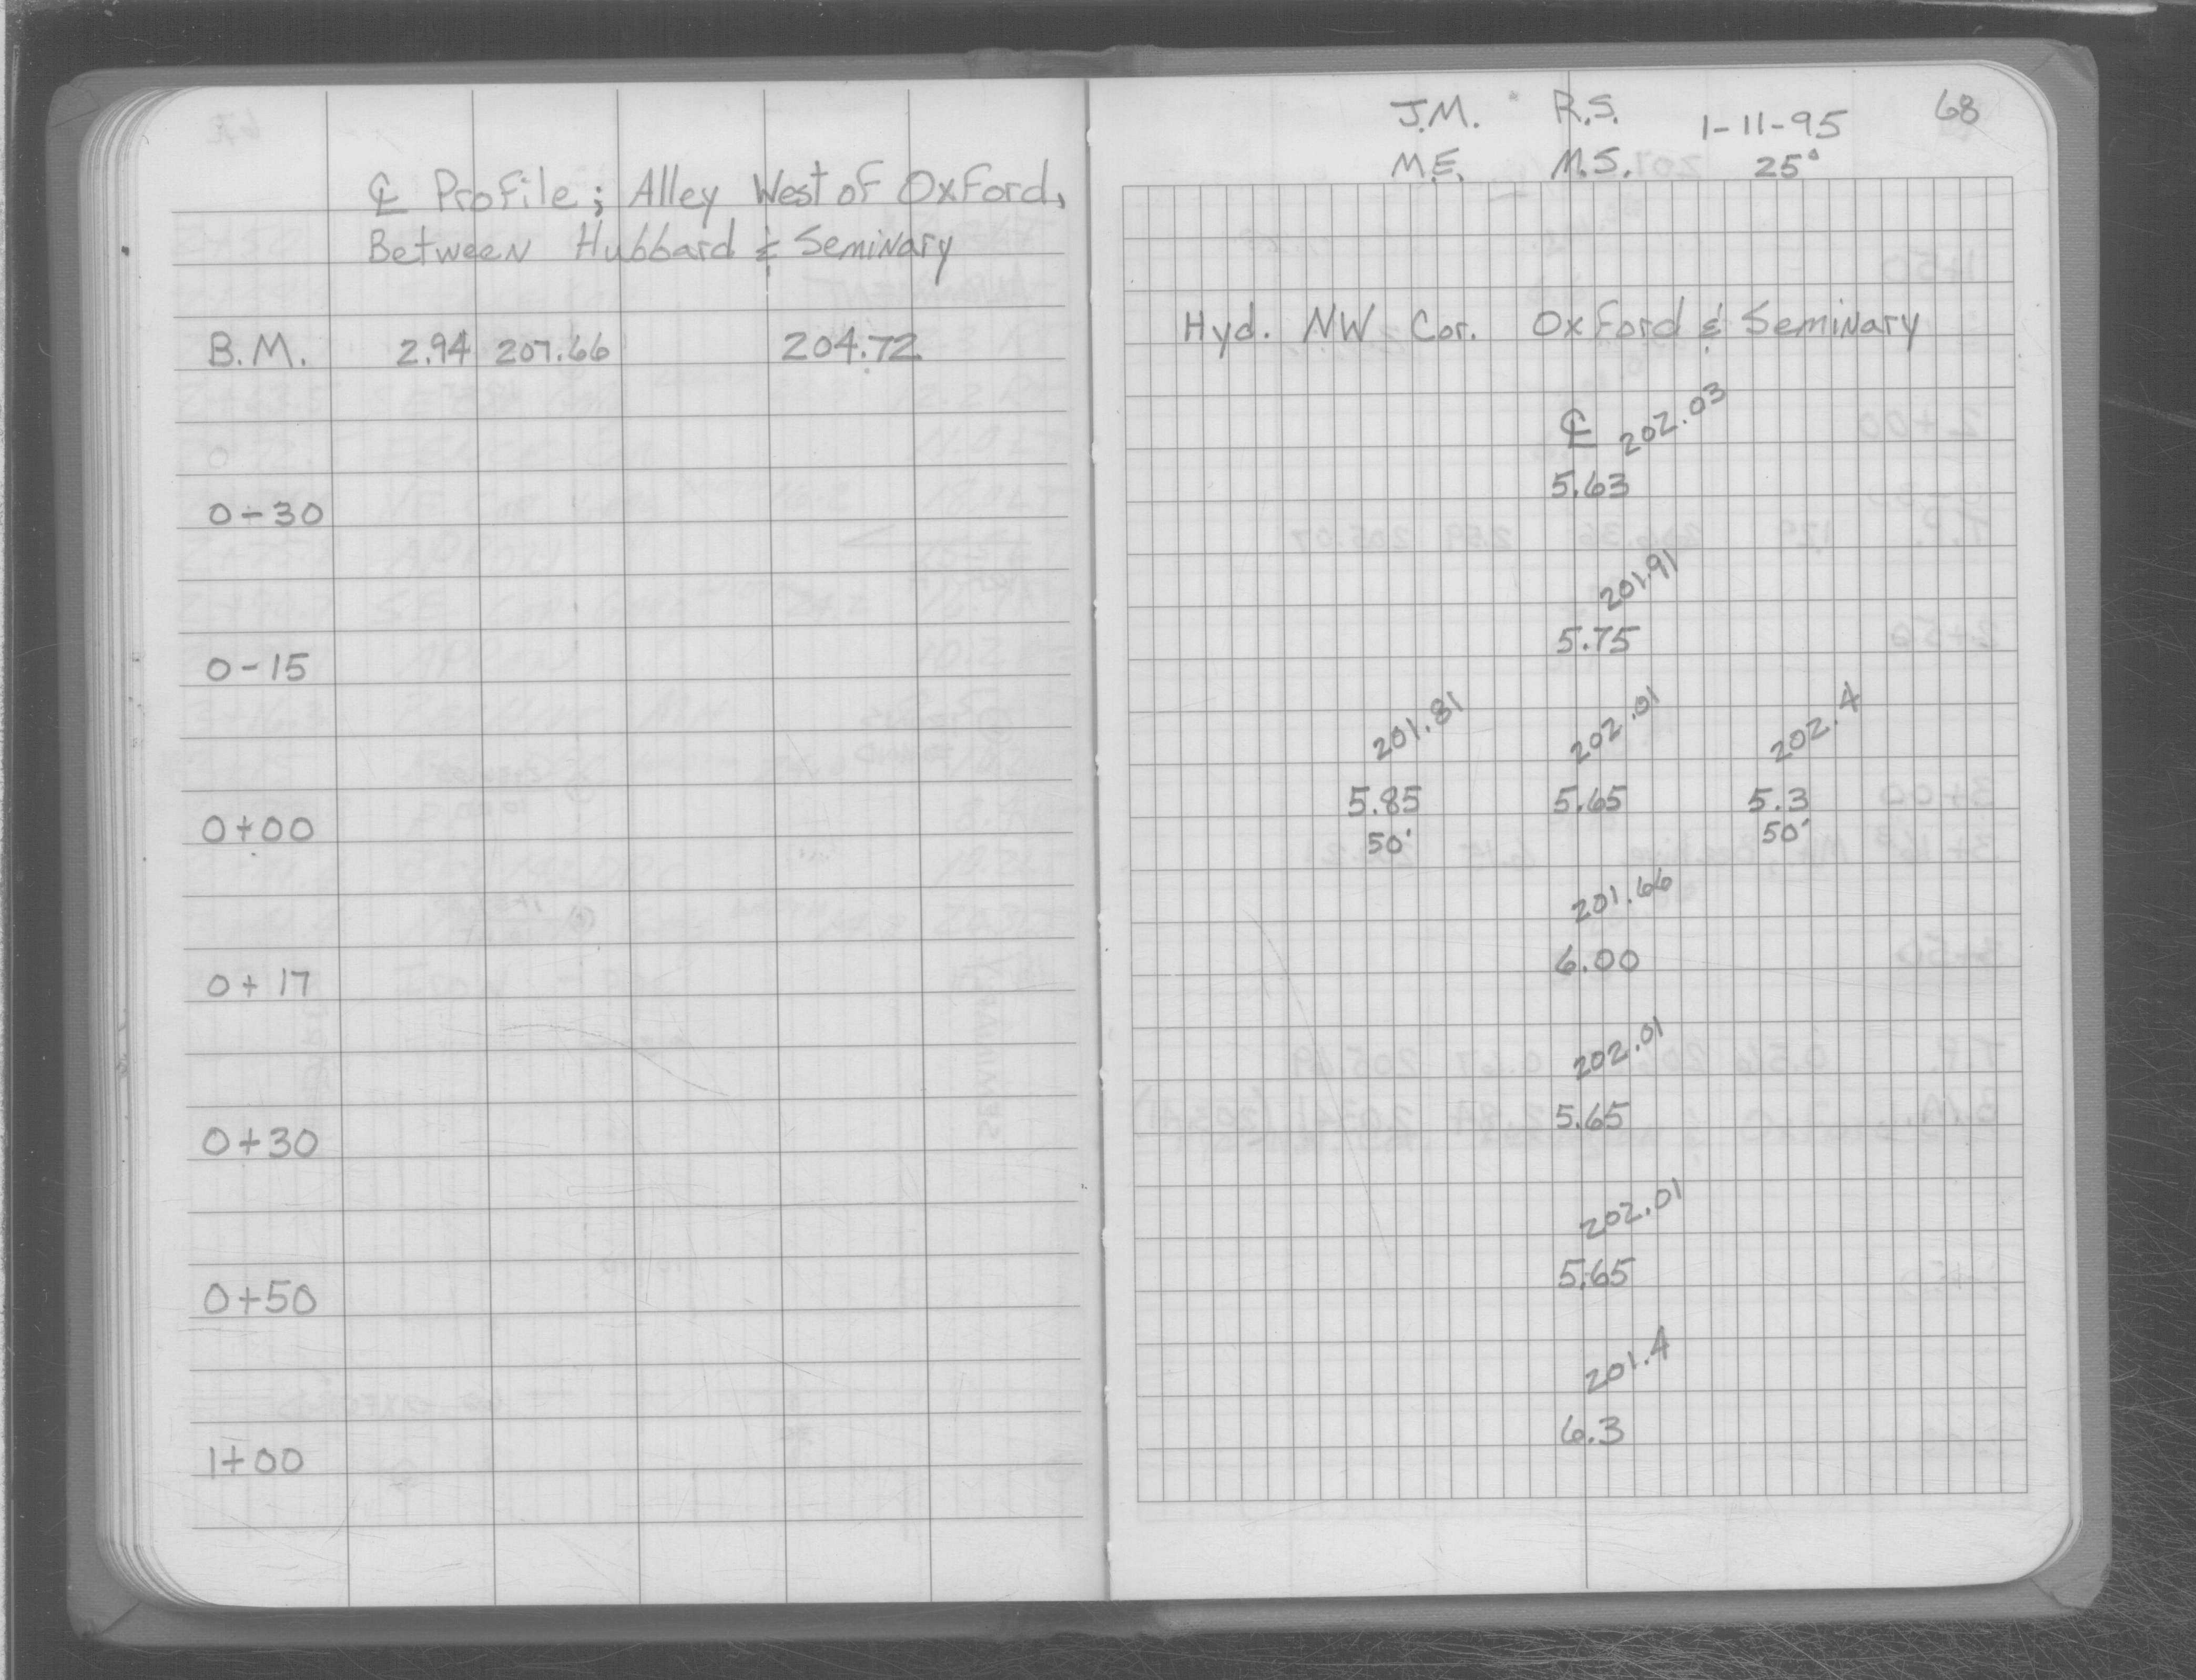 ℄ Profile; Alley West of Oxford,
Between Hubbard & Seminary
B.M. 2.94 207.66 204.72
0-30
0-15
0+00
0+17
0+30
0+50
1+00
J.M. R.S. 1-11-95 68
M.E. M.S. 25°
Hyd. NW Cor. Oxford & Seminary
℄ 202.03
5.63
201.91
5.75
201.81 202.01 202.4
5.85 5.65 5.3
50' 50'
201.66
6.00
202.01
5.65
202.01
5.65
201.4
6.3